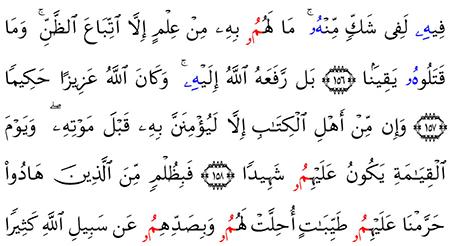 فِيهِۦ لَفِى شَكٍّ مِّنْهُۥ ۚ مَا لَهُمُۥ بِهِۦ مِنْ عِلْمٍ إِلَّا ٱتِّبَاعَ ٱلظَّنِّ ۚ وَمَا
قَتَلُوهُۥ يَقِينَۢا ۝١٥٦ بَل رَّفَعَهُ ٱللَّهُ إِلَيْهِۦ ۚ وَكَانَ ٱللَّهُ عَزِيزًا حَكِيمًا
۝١٥٧ وَإِن مِّنْ أَهْلِ ٱلْكِتَـٰبِ إِلَّا لَيُؤْمِنَنَّ بِهِۦ قَبْلَ مَوْتِهِۦ ۖ وَيَوْمَ
ٱلْقِيَـٰمَةِ يَكُونُ عَلَيْهِمُۥ شَهِيدًا ۝١٥٨ فَبِظُلْمٍ مِّنَ ٱلَّذِينَ هَادُواْ
حَرَّمْنَا عَلَيْهِمُۥ طَيِّبَـٰتٍ أُحِلَّتْ لَهُمُۥ وَبِصَدِّهِمُۥ عَن سَبِيلِ ٱللَّهِ كَثِيرًا